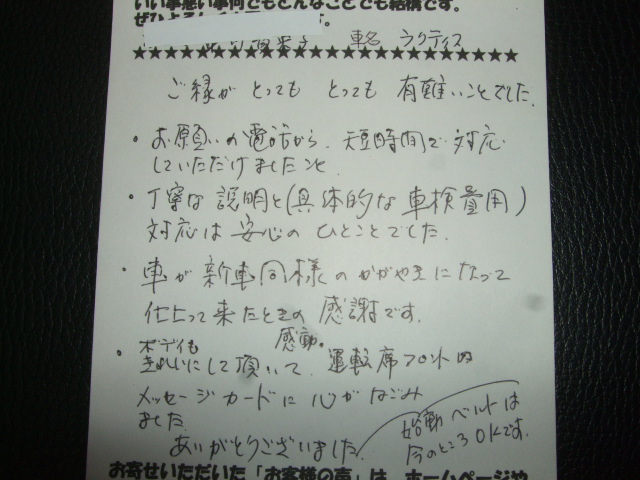 いい事悪い事何でもどんなことでも結構です。
車名 ラクティス
★★★★★★★★★★★★★★★★★★★★★★★★★★★★
ご縁が とっても とっても 有難いことでした。
・お願いの電話から、短時間で対応
していただけましたこと
・丁寧な説明と(具体的な車検費用)
対応は安心のひとことでした。
・車が新車同様のかがやきになって
仕上って来たときの感謝です。
・ボディも 感動。
きれいにして頂いて、運転席フロント内
メッセージカードに心がなごみ
ました
ありがとうございました
始動ベルトは
今のところOKです。
お寄せいただいた「お客様の声」は、ホームページや